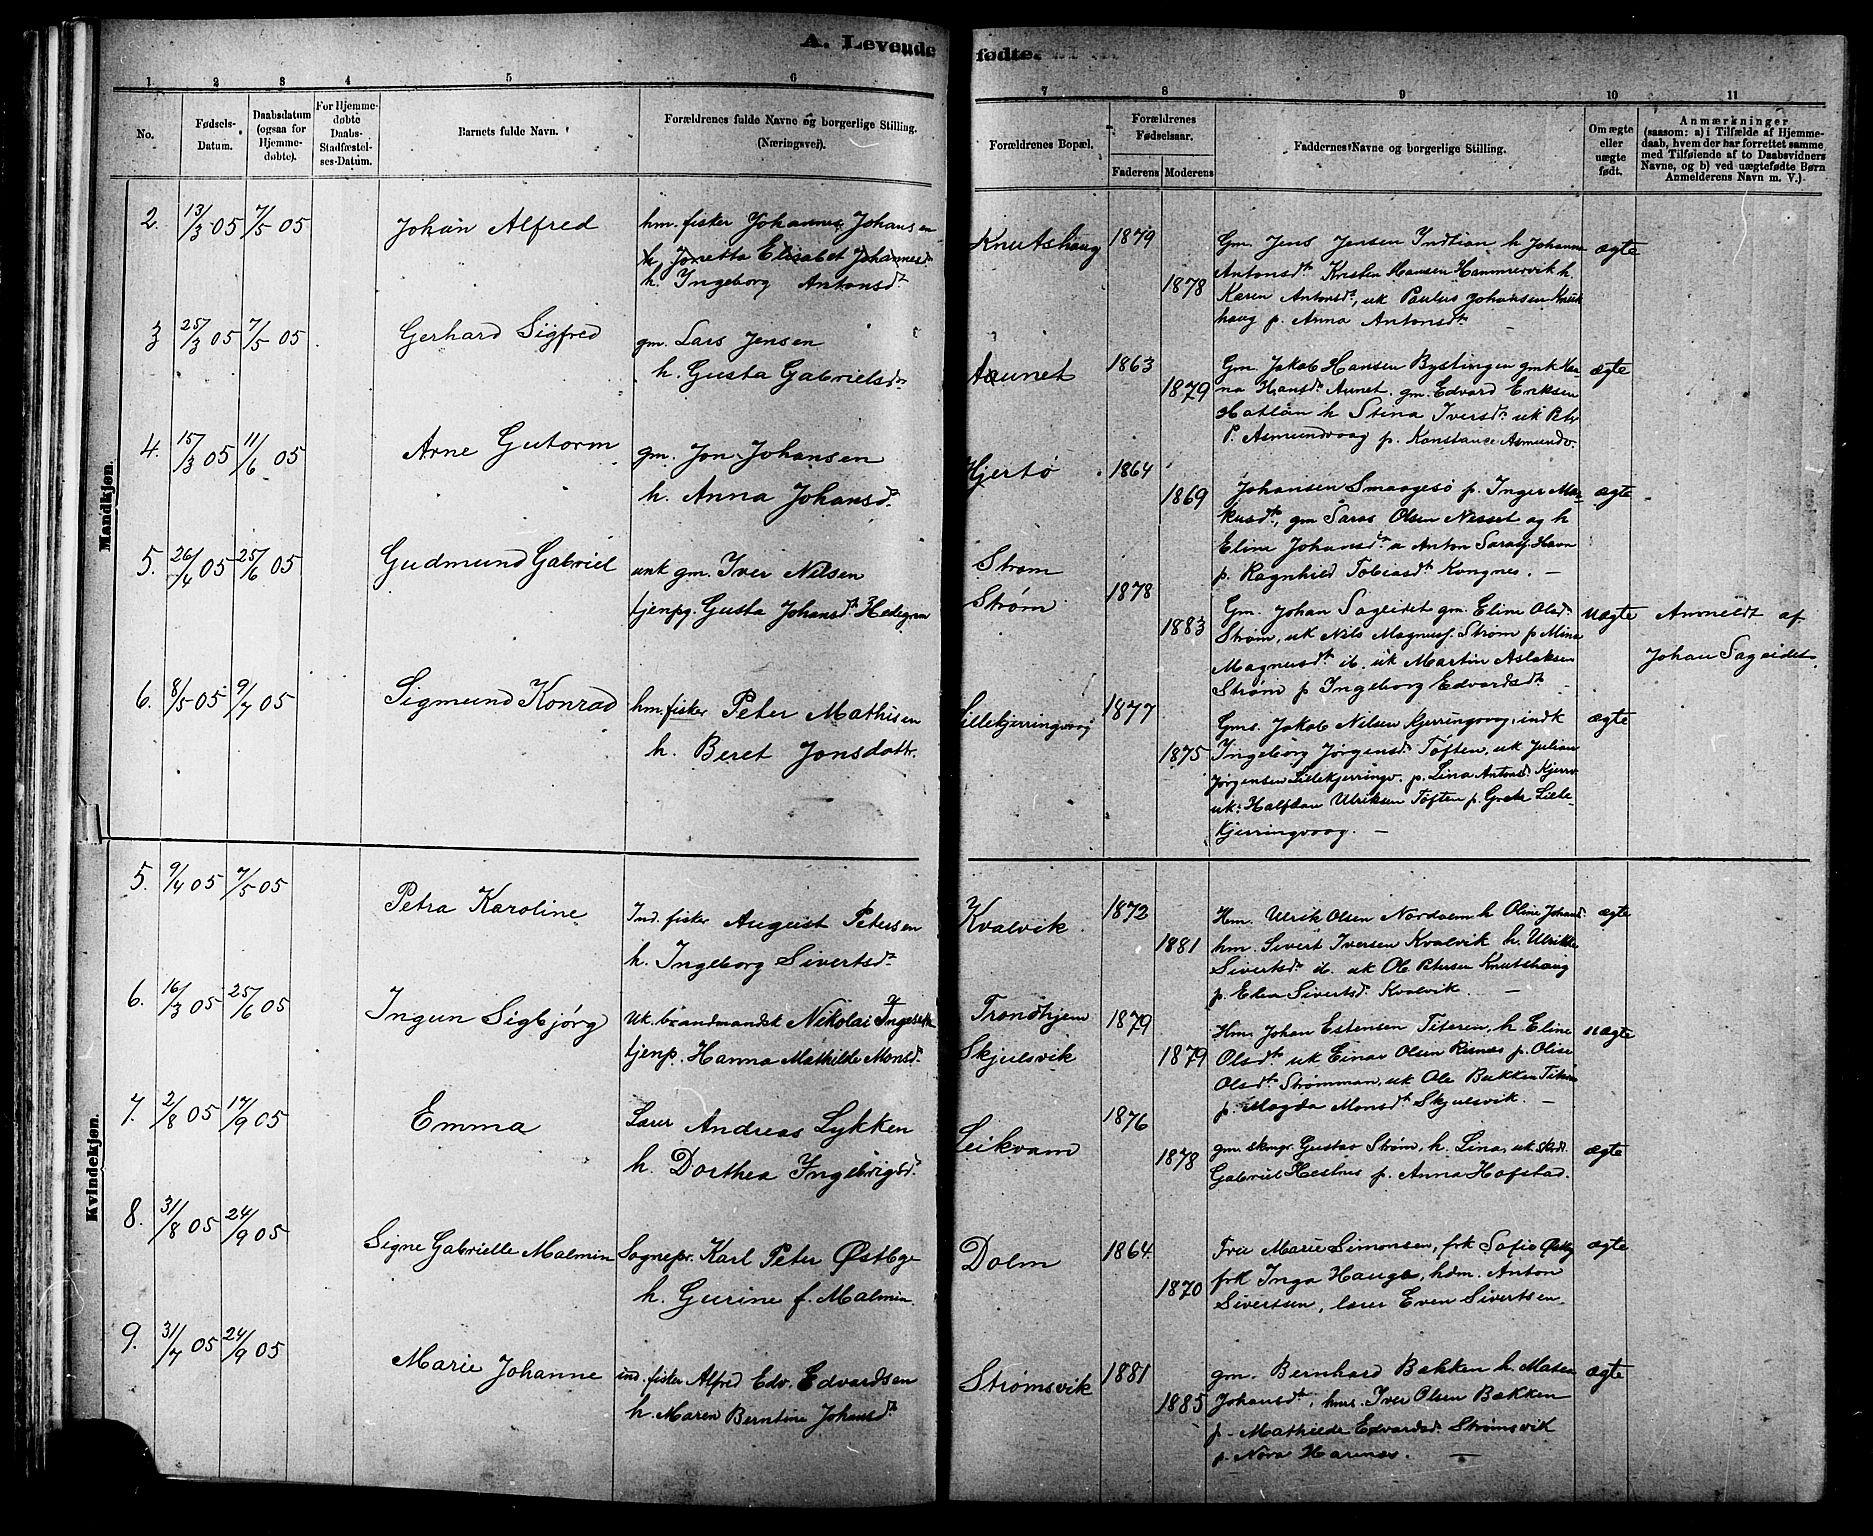 A. Levende fødte.
1. 2 3 4 5 6 7 8 9 10 11
No.
Fødsels-Datum.
Daabsdatum (ogsaa for Hjemme-døbte).
For Hjemme-døbte Daabs-Stadfæstel-ses-Datum.
Barnets fulde Navn.
Forældrenes fulde Navne og borgerlige Stilling. (Næringsvei).
Forældrenes Bopæl.
Forældrenes Fødselsaar.
Faderens Moderens
Faddernes Navne og borgerlige Stilling.
Om ægte eller uægte født.
Anmærkninger (saasom: a) i Tilfælde af Hjemme-daab, hvem der har forrettet samme med Tilføiende af to Daabsvidners Navne, og b) ved uægtefødte Børn Anmelderens Navn m. V.)
Mandkjøn.
2. 13/3 05 7/5 05 Johan Alfred hm. fisker Johannes Johansen
h. Jonetta Elisabet Johannesdt
h. Ingeborg Antonsdt
Knutshaug 1879 1878
Gm. Jens Jensen Indtian h Johanna
Antonsdt Kristen Hansen Hammervik h.
Karen Antonsdt, uk Paulus Johansen Knuts
haug p. Anna Antonsdt
ægte
3 25/3 05 7/5 05 Gerhard Sigfred gm. Lars Jensen
h. Gusta Gabrielsdt
Aunet 1863 1879
Gm. Jakob Hansen Bystingen gmk Han
na Hansdt Aunet. gm. Edvard Eriksen
Hatlan h Stina Iversdt uk Petr
P. Asmundvaag p. Konstance Asmundv.
ægte
4. 15/3 05 11/6 05 Arne Gutorm gm. Jon Johansen
h. Anna Johansdt
Hjertø 1864 1869
Johansen Smaagesø p. Inger Mar
kusdt, gm Saras Olsen Nesset og h
Eline Johansdt a Anton Sarasj. Havn
p. Ragnhild Tobiasdt Kongnes. —
ægte
5. 26/4 05 25/6 05 Gudmund Gabriel unk gm. Iver Nilsen
tjenpg. Gusta Johansdt Hedegren
Strøm
Strøm 1878 1883
Gm. Johan Sageidet gm. Eline Olsdt
Strøm, uk Nils Magnusj. Strøm p Mina
Magnusdt ib. uk Martin Aslaksen
Strøm p Ingeborg Edvardsdt —
uægte Anmeldt af
Johan Sageidet.
6. 8/5 05 9/7 05 Sigmund Konrad hm. fisker Peter Mathisen
h. Beret Jonsdottr.
Lillekjerringvaag 1877 1875
Gms. Jakob Nilsen Kjerringvaag, indk
Ingeborg Jørgensdt Toften, uk Julian
Jørgensen Lillekjerringv. p. Lina Antonsdt Kjerrv
uk. Halfdan Ulriksen Toften p. Grete Lille-
kjerringvaag. —
ægte
Kvindekjøn.
5. 9/4 05 7/5 05 Petra Karoline Ind. fisker August Petersen
h. Ingeborg Sivertsdt
Kvalvik. 1872 1881
Hm. Ulrik Olsen Nordalm h Oline Johansd.
hm. Sivert Iversen Kvalvik h. Ulrikke
Sivertsdt ib. uk Ole Petersen Knutshaug
p. Elen Sivertsdt Kvalvik. —
ægte
6. 16/3 05 25/6 05 Ingun Sigbjørg Uk. brandmandsk Nikolai
tjenp. Hanna Mathilde Monsdt
Trondhjem
Skjulsvik 1879 1879
Hm. Johan Estensen Titeren, h. Eline
Olsdt uk Einar Olsen Risnæs p. Olise
Olsdt Strømman, uk Ole Bakken Titran
p. Magda Monsdt Skjulsvik. —
uægte
7. 2/8 05 17/9 05 Emma Lærer Andreas Lykken
h. Dorthea Ingebrigtsdt
Leikvam 1876 1878
gm. skmgr. Gustav Strøm, h. Lina, uk.
Gabriel Hestnes p. Anna Hofstad.
ægte
8. 31/8 05 24/9 05 Signe Gabrielle Malmin Sognepr. Karl Peter Østbye
h. Gurine f. Malmin.
Dolm 1864 1870
Fru Marie Simonsen, frk Sofie Østby
frk Inga Hauge, hdm. Anton
Sivertsen, lærer Even Sivertsen.
ægte
9. 31/7 05 24/9 05 Marie Johanne ind. fisker Alfred Edv. Edvardsen
h. Maren Berntine Johansdt
Strømsvik 1881 1885
gm. Bernhard Bakken h. Maten
Johansdt, hms. Iver Olsen Bakken
p. Mathilde Edvardsdt Strømsvik
p. Nora Havnæs. —
ægte